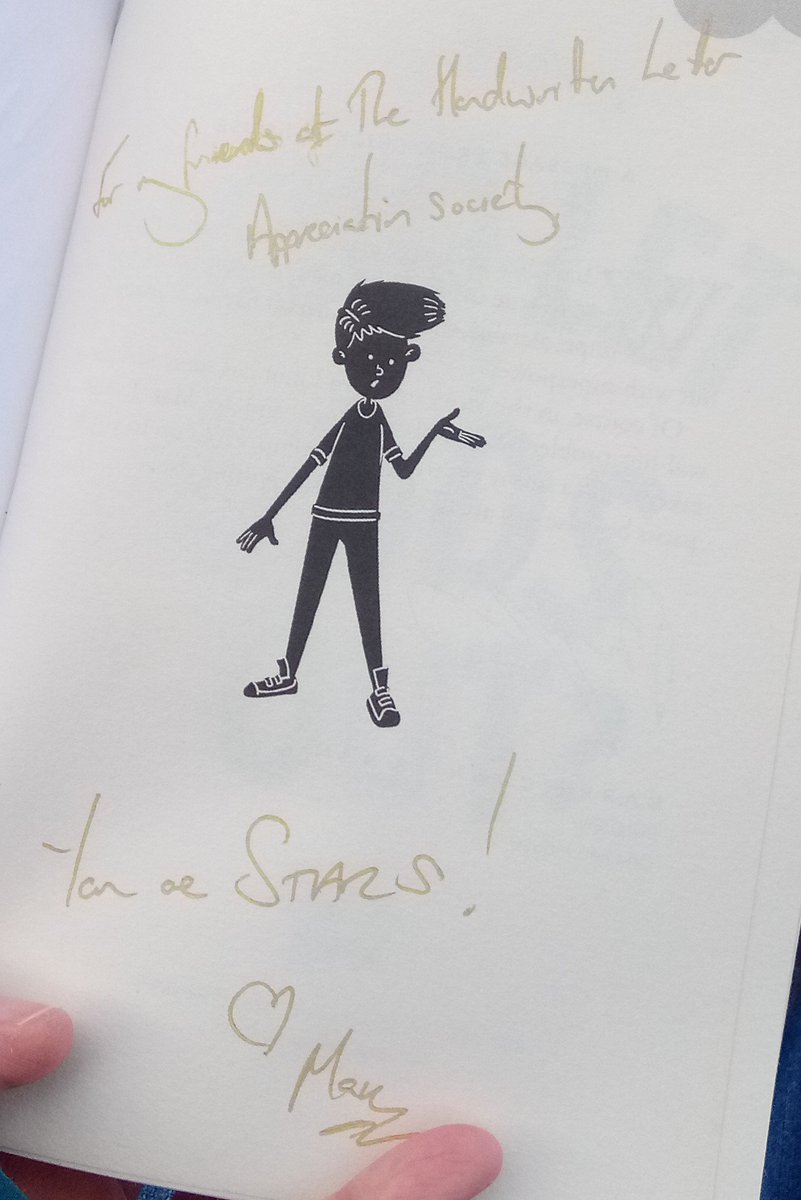 For my friends at The Handwritten Letter
Appreciation Society,
You are STARS!